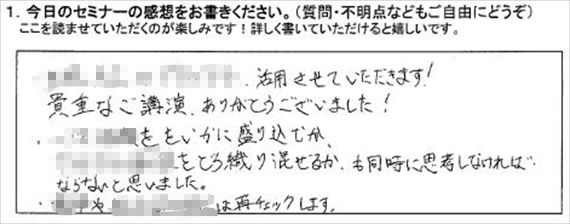 1. 今日のセミナーの感想をお書きください。（質問・不明点などもご自由にどうぞ）
ここを読ませていただくのが楽しみです！詳しく書いていただけると嬉しいです。
活用させていただきます！
貴重なご講演、ありがとうございました！
・をいかに盛り込むか、
をどう織り混ぜるか、も同時に思考しなければ
ならないと思いました。
・は再チェックします。